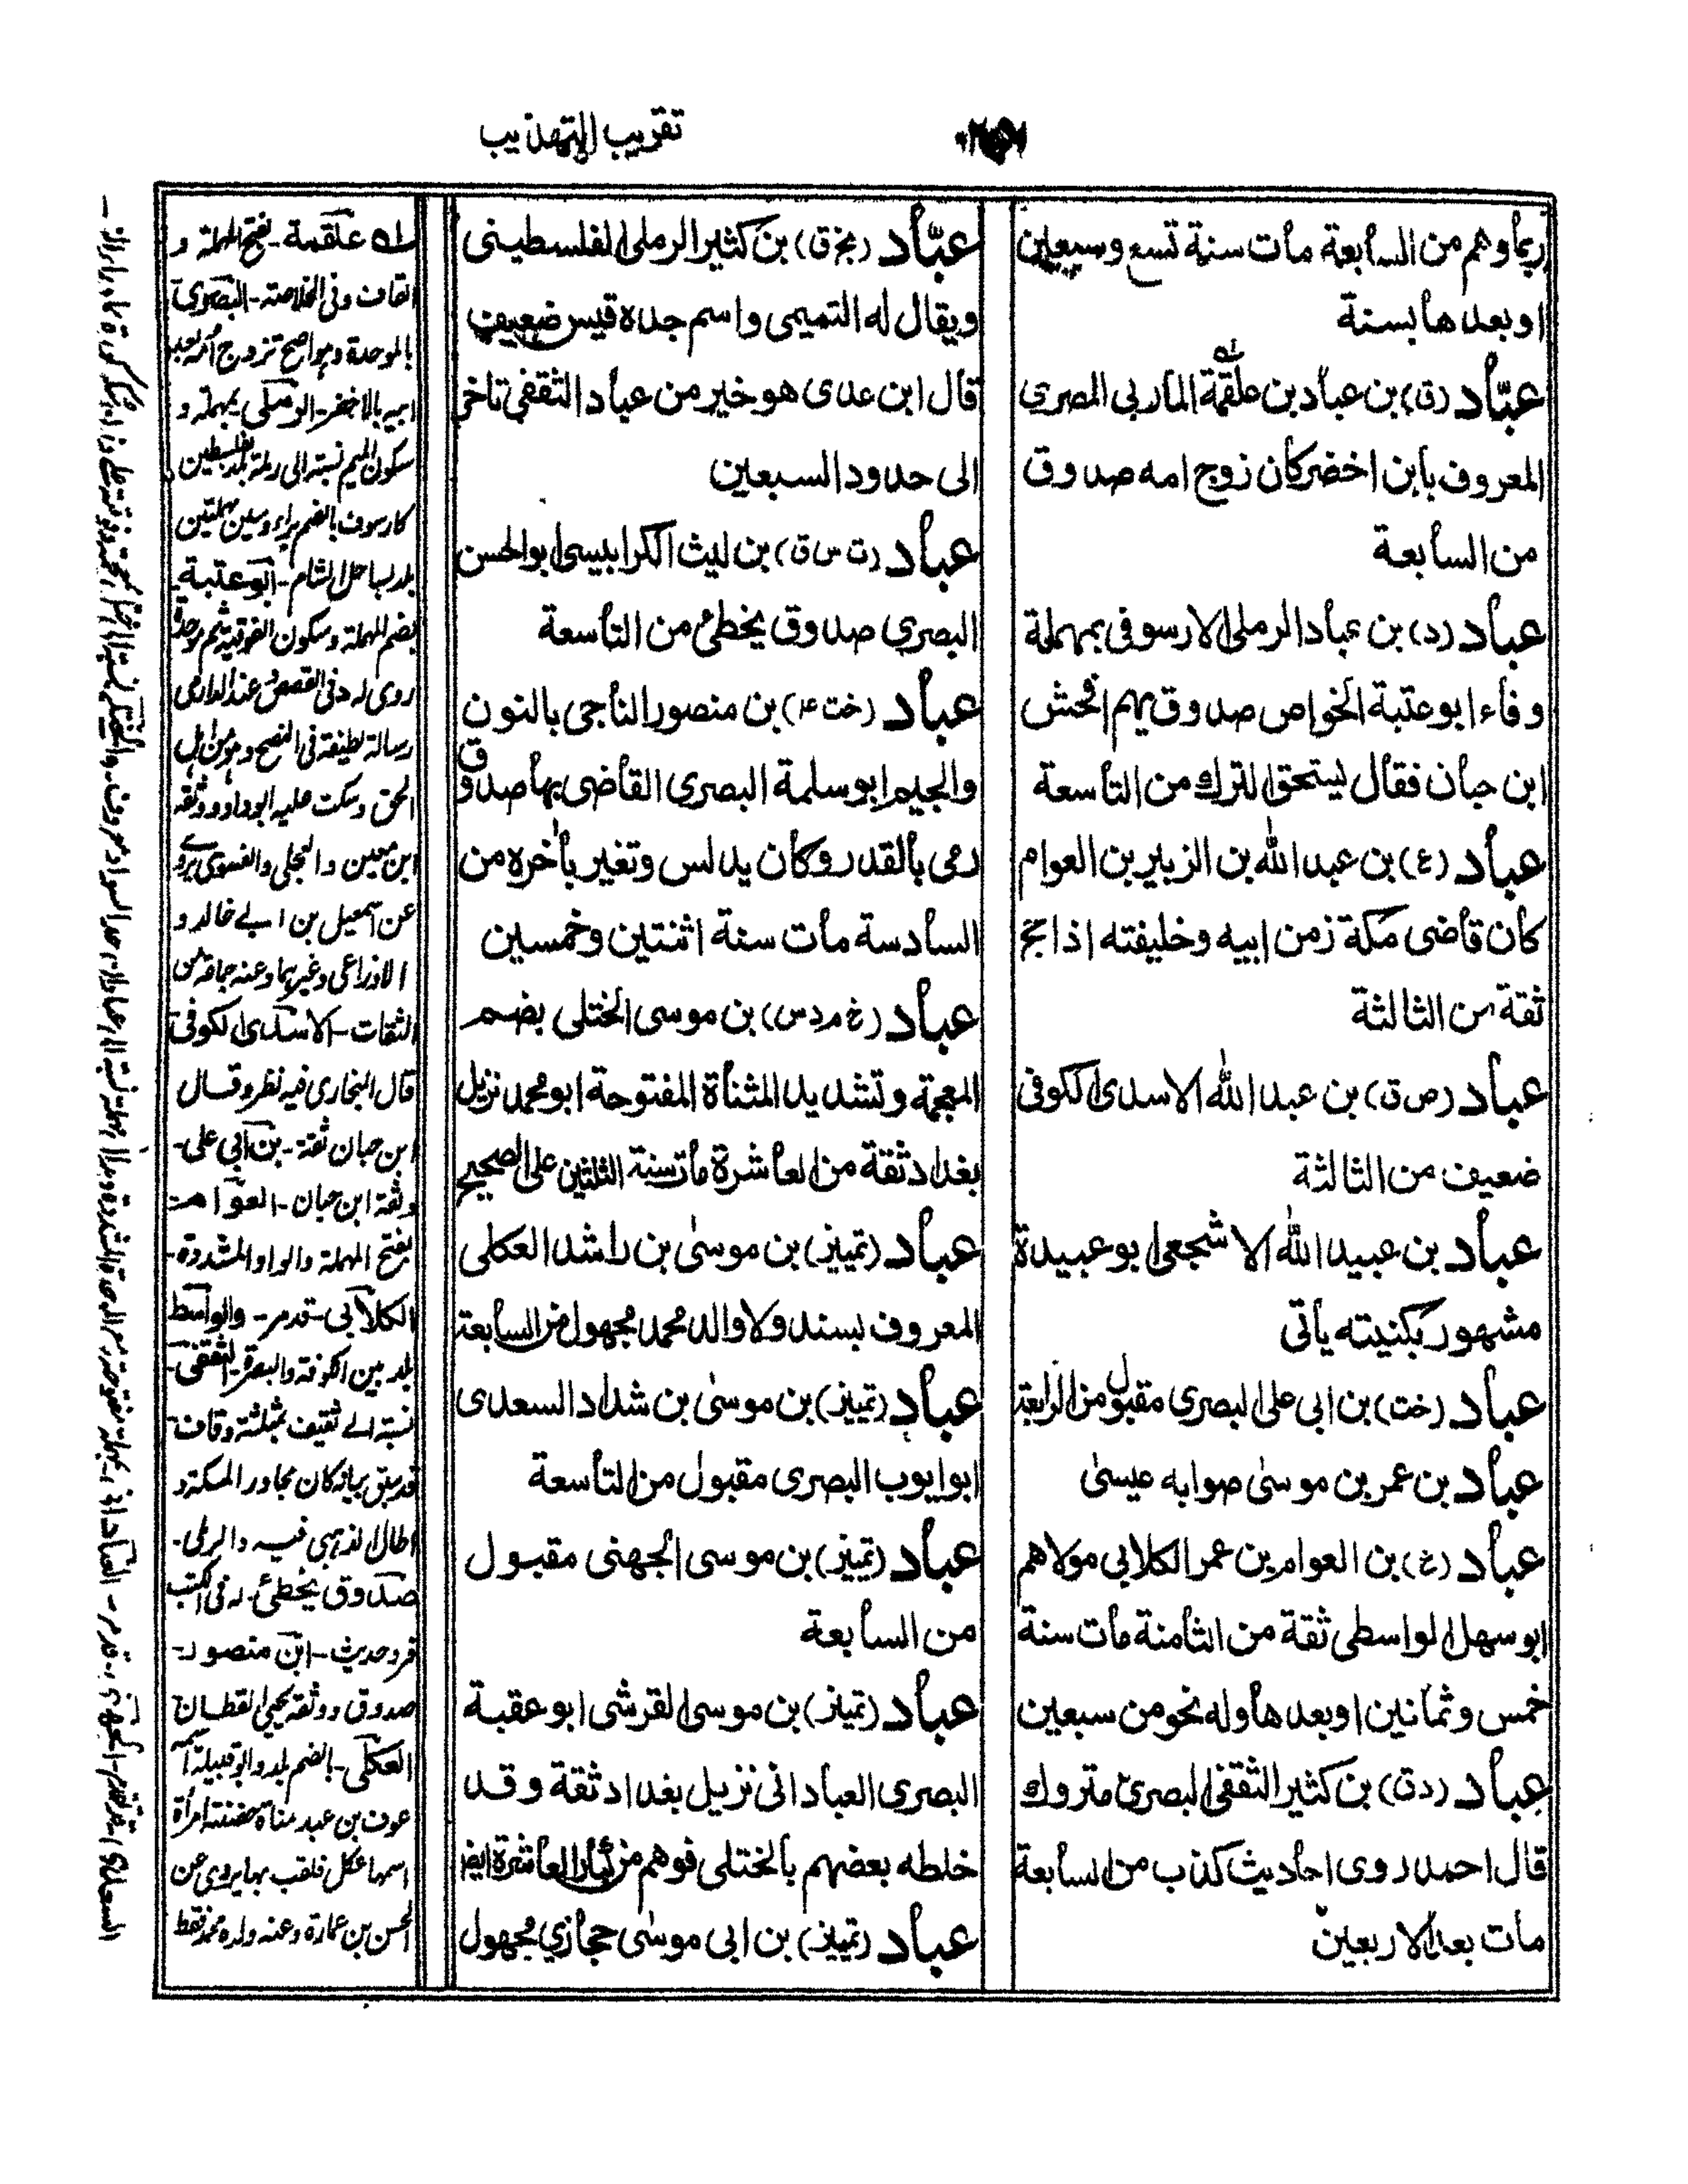 تقريب التهذيب
ربما وهم من السابعة مات سنة تسع وسبعين
او بعدها بسنة
عبّاد (ق) بن عباد بن علقمة المازنى المصري
المعروف بابن اخضر كان زوج امه صدوق
من السابعة
عباد (د) بن عباد الرملى الارسوفى بمهملة
وفاء ابو عتبة الخواص صدوق يهم افحش
ابن حبان فقال يستحق الترك من التاسعة
عباد (ع) بن عبد الله بن الزبير بن العوام
كان قاضى مكة زمن ابيه وخليفته اذا حج
ثقة من الثالثة
عباد (ص ق) بن عبد الله الاسدى الكوفى
ضعيف من الثالثة
عباد بن عبيد الله الاشجعى ابو عبيدة
مشهور بكنيته يأتى
عباد (خت) بن ابى على البصرى مقبول من الرابعة
عباد بن عمر بن موسىٰ صوابه عيسىٰ
عباد (ع) بن العوام بن عمر الكلابى مولاهم
ابو سهل الواسطى ثقة من الثامنة مات سنة
خمس وثمانين او بعدها وله نحو من سبعين
عباد (د ق) بن كثير الثقفى البصرى متروك
قال احمد روى احاديث كذب من السابعة
مات بعد الاربعين
عبّاد (بخ ق) بن كثير الرملى الفلسطينى
ويقال له التميمى واسم جده قيس ضعيف
قال ابن عدى هو خير من عباد الثقفى تاخر
الى حدود السبعين
عباد (ت س ق) بن ليث الكرابيسى ابو الحسن
البصري صدوق يخطئ من التاسعة
عباد (خت ۴) بن منصور الناجى بالنون
والجيم ابو سلمة البصرى القاضى بها صدوق
رمى بالقدر وكان يدلس وتغير بأخره من
السادسة مات سنة اثنتين وخمسين
عباد (خ م د س) بن موسى الختلى بضم
المعجمة وتشديد المثناة المفتوحة ابو محمد نزيل
بغداد ثقة من العاشرة مات سنة الثلثين على الصحيح
عباد (تمييز) بن موسىٰ بن راشد العكلى
المعروف بسندولا والد محمد مجهول من السابعة
عباد (تمييز) بن موسىٰ بن شداد السعدى
ابو ايوب البصرى مقبول من التاسعة
عباد (تمييز) بن موسى الجهنى مقبول
من السابعة
عباد (تمييز) بن موسى القرشى ابو عقبة
البصرى العبادانى نزيل بغداد ثقة وقد
خلطه بعضهم بالختلى فوهم من كبار العاشرة ايضا
عباد (تمييز) بن ابى موسىٰ حجازي مجهول
له علقمة - بفتح المهملة و
القاف وفى الخلاصة - البصرى
بالموحدة وهو اصح تزوج امه بعد
ابيه بالاخضر - الرملى بمهملة و
سكون الميم نسبة الى رملة بلد بفلسطين
كارسوف بالضم براء وسين مهملتين
بلد بساحل الشام - ابو عتبة
بضم المهملة وسكون الفوقية ثم موحدة
روى له د فى القصص وعند الدارمى
رسالة لطيفة فى النصح وهو من اهل
الحق وسكت عليه ابو داود ووثقه
ابن معين والعجلى والفسوى يروى
عن اسمعيل بن ابى خالد و
الاوزاعى وغيرهما وعنه جماعة من
الثقات - الاسدى الكوفى
قال البخارى فيه نظر وقال
ابن حبان ثقة - بن ابى على -
وثقة ابن حبان - العوام -
بفتح المهملة والواو المشددة -
الكلابى - تقدم - والواسط
بلد بين الكوفة والبصرة - الثقفى -
نسبة الى ثقيف بمثلثة وقاف
قد سبق بيانه كان مجاور المكة و
اطال الذهبى فيه والرملى -
صدوق يخطئ - له فى الكتب
فرد حديث - ابن منصور -
صدوق ووثقه يحيى القطان
العكلى - بالضم بلد وابو قبيلة
عوف بن عبد مناة حضنته امرأة
اسمها عكل فلقب بها يروى عن
الحسن بن عمارة وعنه ولده محمد فقط